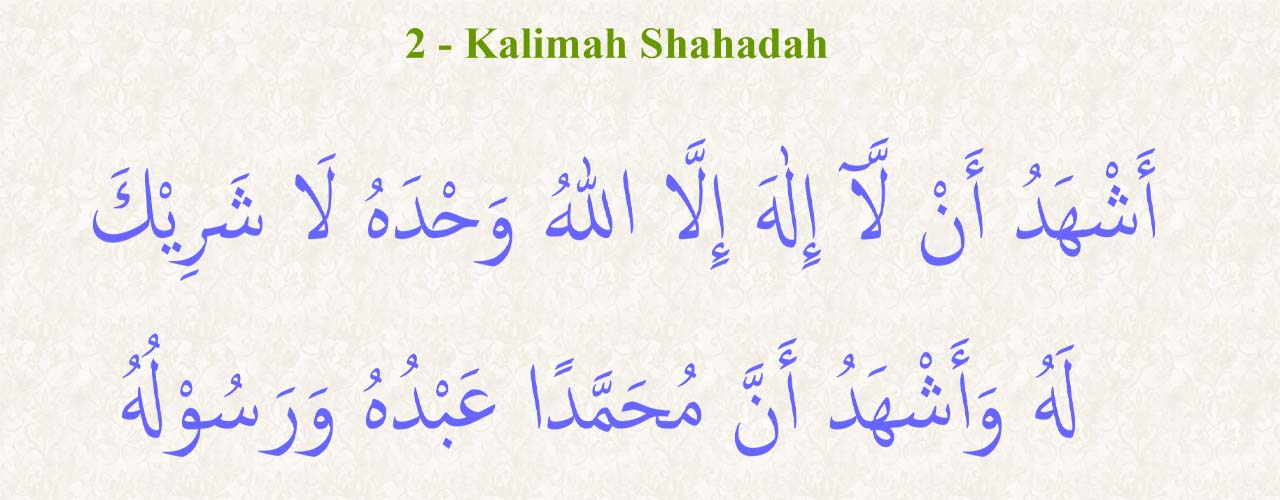 2 - Kalimah Shahadah
أَشْهَدُ أَنْ لَّآ إِلٰهَ إِلَّا اللهُ وَحْدَهُ لَا شَرِيْكَ
لَهُ وَأَشْهَدُ أَنَّ مُحَمَّدًا عَبْدُهُ وَرَسُوْلُهُ